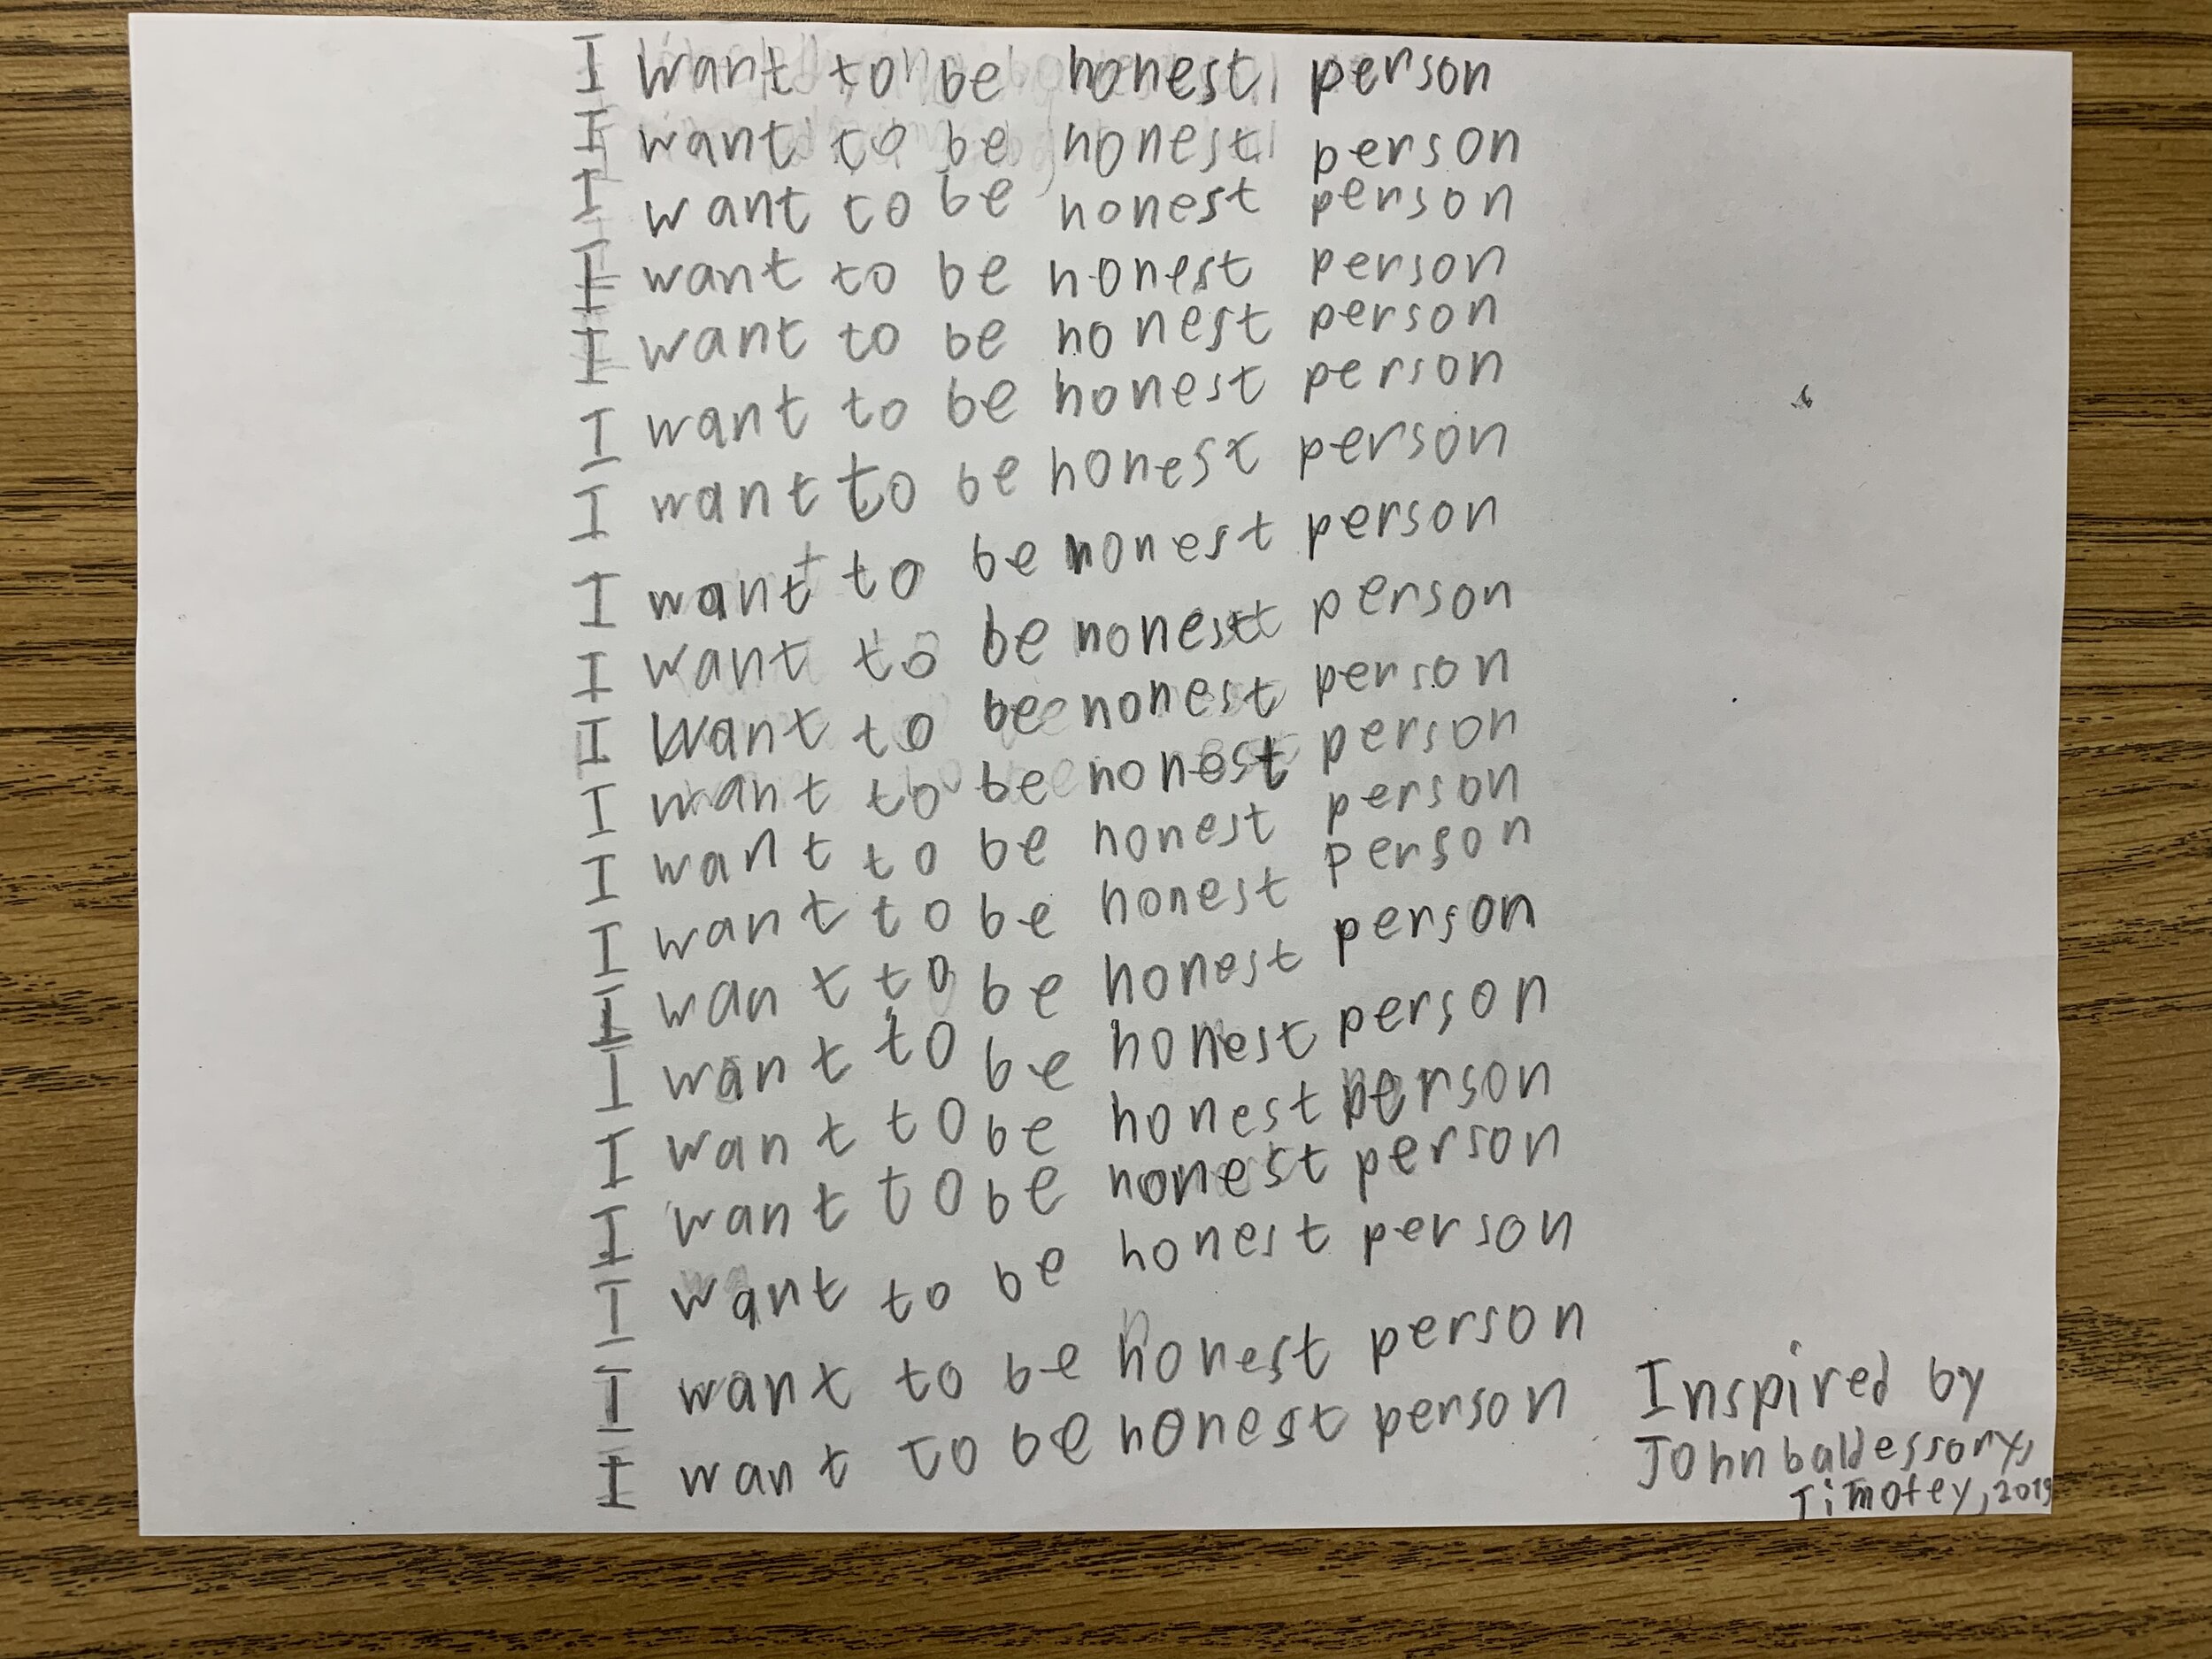 I want to be honest person
I want to be honest person
I want to be honest person
I want to be honest person
I want to be honest person
I want to be honest person
I want to be honest person
I want to be honest person
I want to be honest person
I want to be honest person
I want to be honest person
I want to be honest person
I want to be honest person
I want to be honest person
I want to be honest person
I want to be honest person
I want to be honest person
I want to be honest person
I want to be honest person
I want to be honest person
Inspired by
John baldessory,
Timofey, 2019